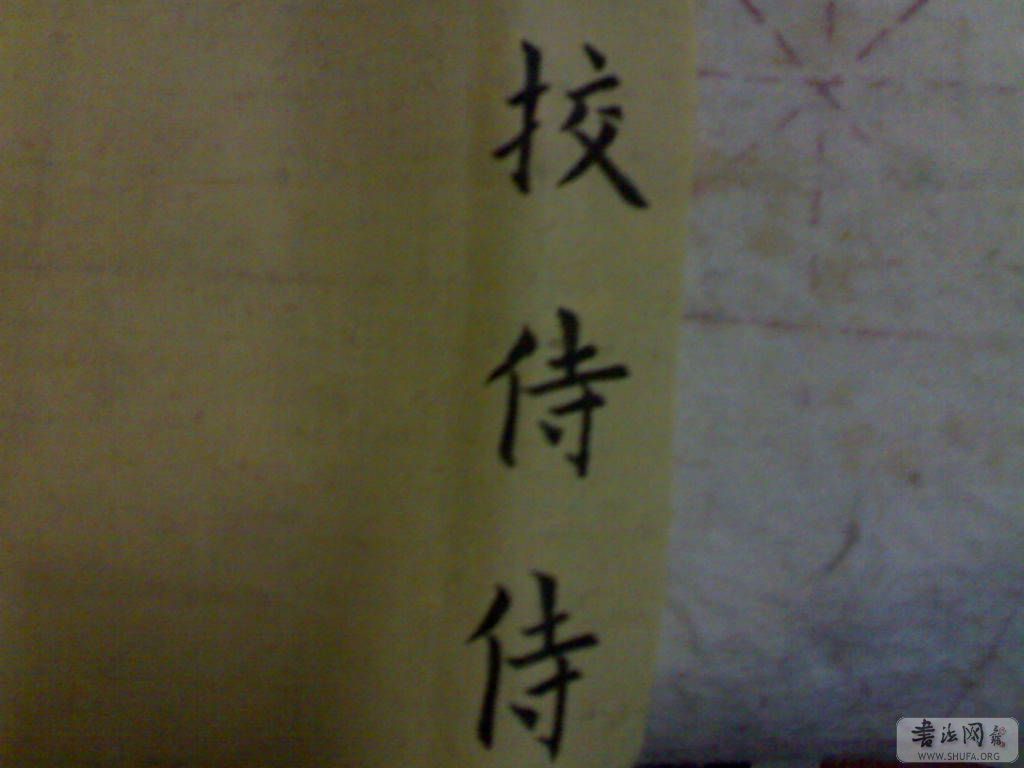 挍
侍
侍
書法网
WWW.SHUFA.ORG